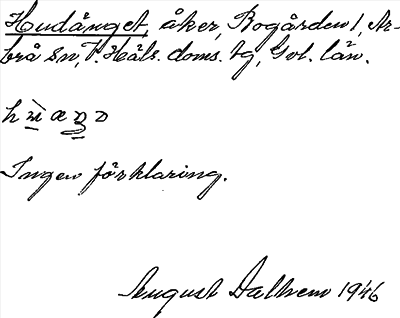 Hudänget, åker, Rogården 1, Ar-
brå sn, V. Häls. doms. tg, Gvl. län.
Ingen förklaring.
August Dalhem 1946